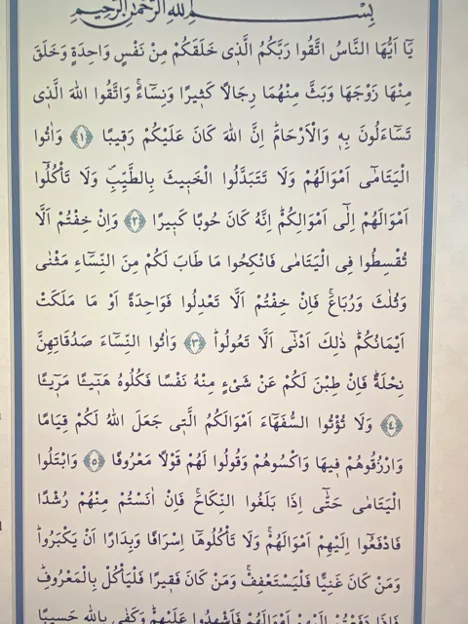 بِسْمِ اللهِ الرَّحْمٰنِ الرَّحِيمِ
يَٓا اَيُّهَا النَّاسُ اتَّقُوا رَبَّكُمُ الَّذ۪ي خَلَقَكُمْ مِنْ نَفْسٍ وَاحِدَةٍ وَخَلَقَ
مِنْهَا زَوْجَهَا وَبَثَّ مِنْهُمَا رِجَالًا كَث۪يرًا وَنِسَٓاءًۚ وَاتَّقُوا اللهَ الَّذ۪ي
تَسَٓاءَلُونَ بِه۪ وَالْاَرْحَامَۜ اِنَّ اللهَ كَانَ عَلَيْكُمْ رَق۪يبًا ﴿١﴾ وَاٰتُوا
الْيَتَامٰٓى اَمْوَالَهُمْ وَلَا تَتَبَدَّلُوا الْخَب۪يثَ بِالطَّيِّبِۖ وَلَا تَأْكُلُٓوا
اَمْوَالَهُمْ اِلٰٓى اَمْوَالِكُمْۜ اِنَّهُ كَانَ حُوبًا كَب۪يرًا ﴿٢﴾ وَاِنْ خِفْتُمْ اَلَّا
تُقْسِطُوا فِي الْيَتَامٰى فَانْكِحُوا مَا طَابَ لَكُمْ مِنَ النِّسَٓاءِ مَثْنٰى
وَثُلٰثَ وَرُبَاعَۚ فَاِنْ خِفْتُمْ اَلَّا تَعْدِلُوا فَوَاحِدَةً اَوْ مَا مَلَكَتْ
اَيْمَانُكُمْۜ ذٰلِكَ اَدْنٰٓى اَلَّا تَعُولُواۜ ﴿٣﴾ وَاٰتُوا النِّسَٓاءَ صَدُقَاتِهِنَّ
نِحْلَةًۜ فَاِنْ طِبْنَ لَكُمْ عَنْ شَيْءٍ مِنْهُ نَفْسًا فَكُلُوهُ هَن۪ٓيـًٔا مَر۪ٓيـًٔا
﴿٤﴾ وَلَا تُؤْتُوا السُّفَهَٓاءَ اَمْوَالَكُمُ الَّت۪ي جَعَلَ اللهُ لَكُمْ قِيَامًا
وَارْزُقُوهُمْ ف۪يهَا وَاكْسُوهُمْ وَقُولُوا لَهُمْ قَوْلًا مَعْرُوفًا ﴿٥﴾ وَابْتَلُوا
الْيَتَامٰى حَتّٰٓى اِذَا بَلَغُوا النِّكَاحَۚ فَاِنْ اٰنَسْتُمْ مِنْهُمْ رُشْدًا
فَادْفَعُٓوا اِلَيْهِمْ اَمْوَالَهُمْۚ وَلَا تَأْكُلُوهَٓا اِسْرَافًا وَبِدَارًا اَنْ يَكْبَرُواۜ
وَمَنْ كَانَ غَنِيًّا فَلْيَسْتَعْفِفْۚ وَمَنْ كَانَ فَق۪يرًا فَلْيَأْكُلْ بِالْمَعْرُوفِۜ
فَاِذَا دَفَعْتُمْ اِلَيْهِمْ اَمْوَالَهُمْ فَاَشْهِدُوا عَلَيْهِمْۜ وَكَفٰى بِاللهِ حَس۪يبًا